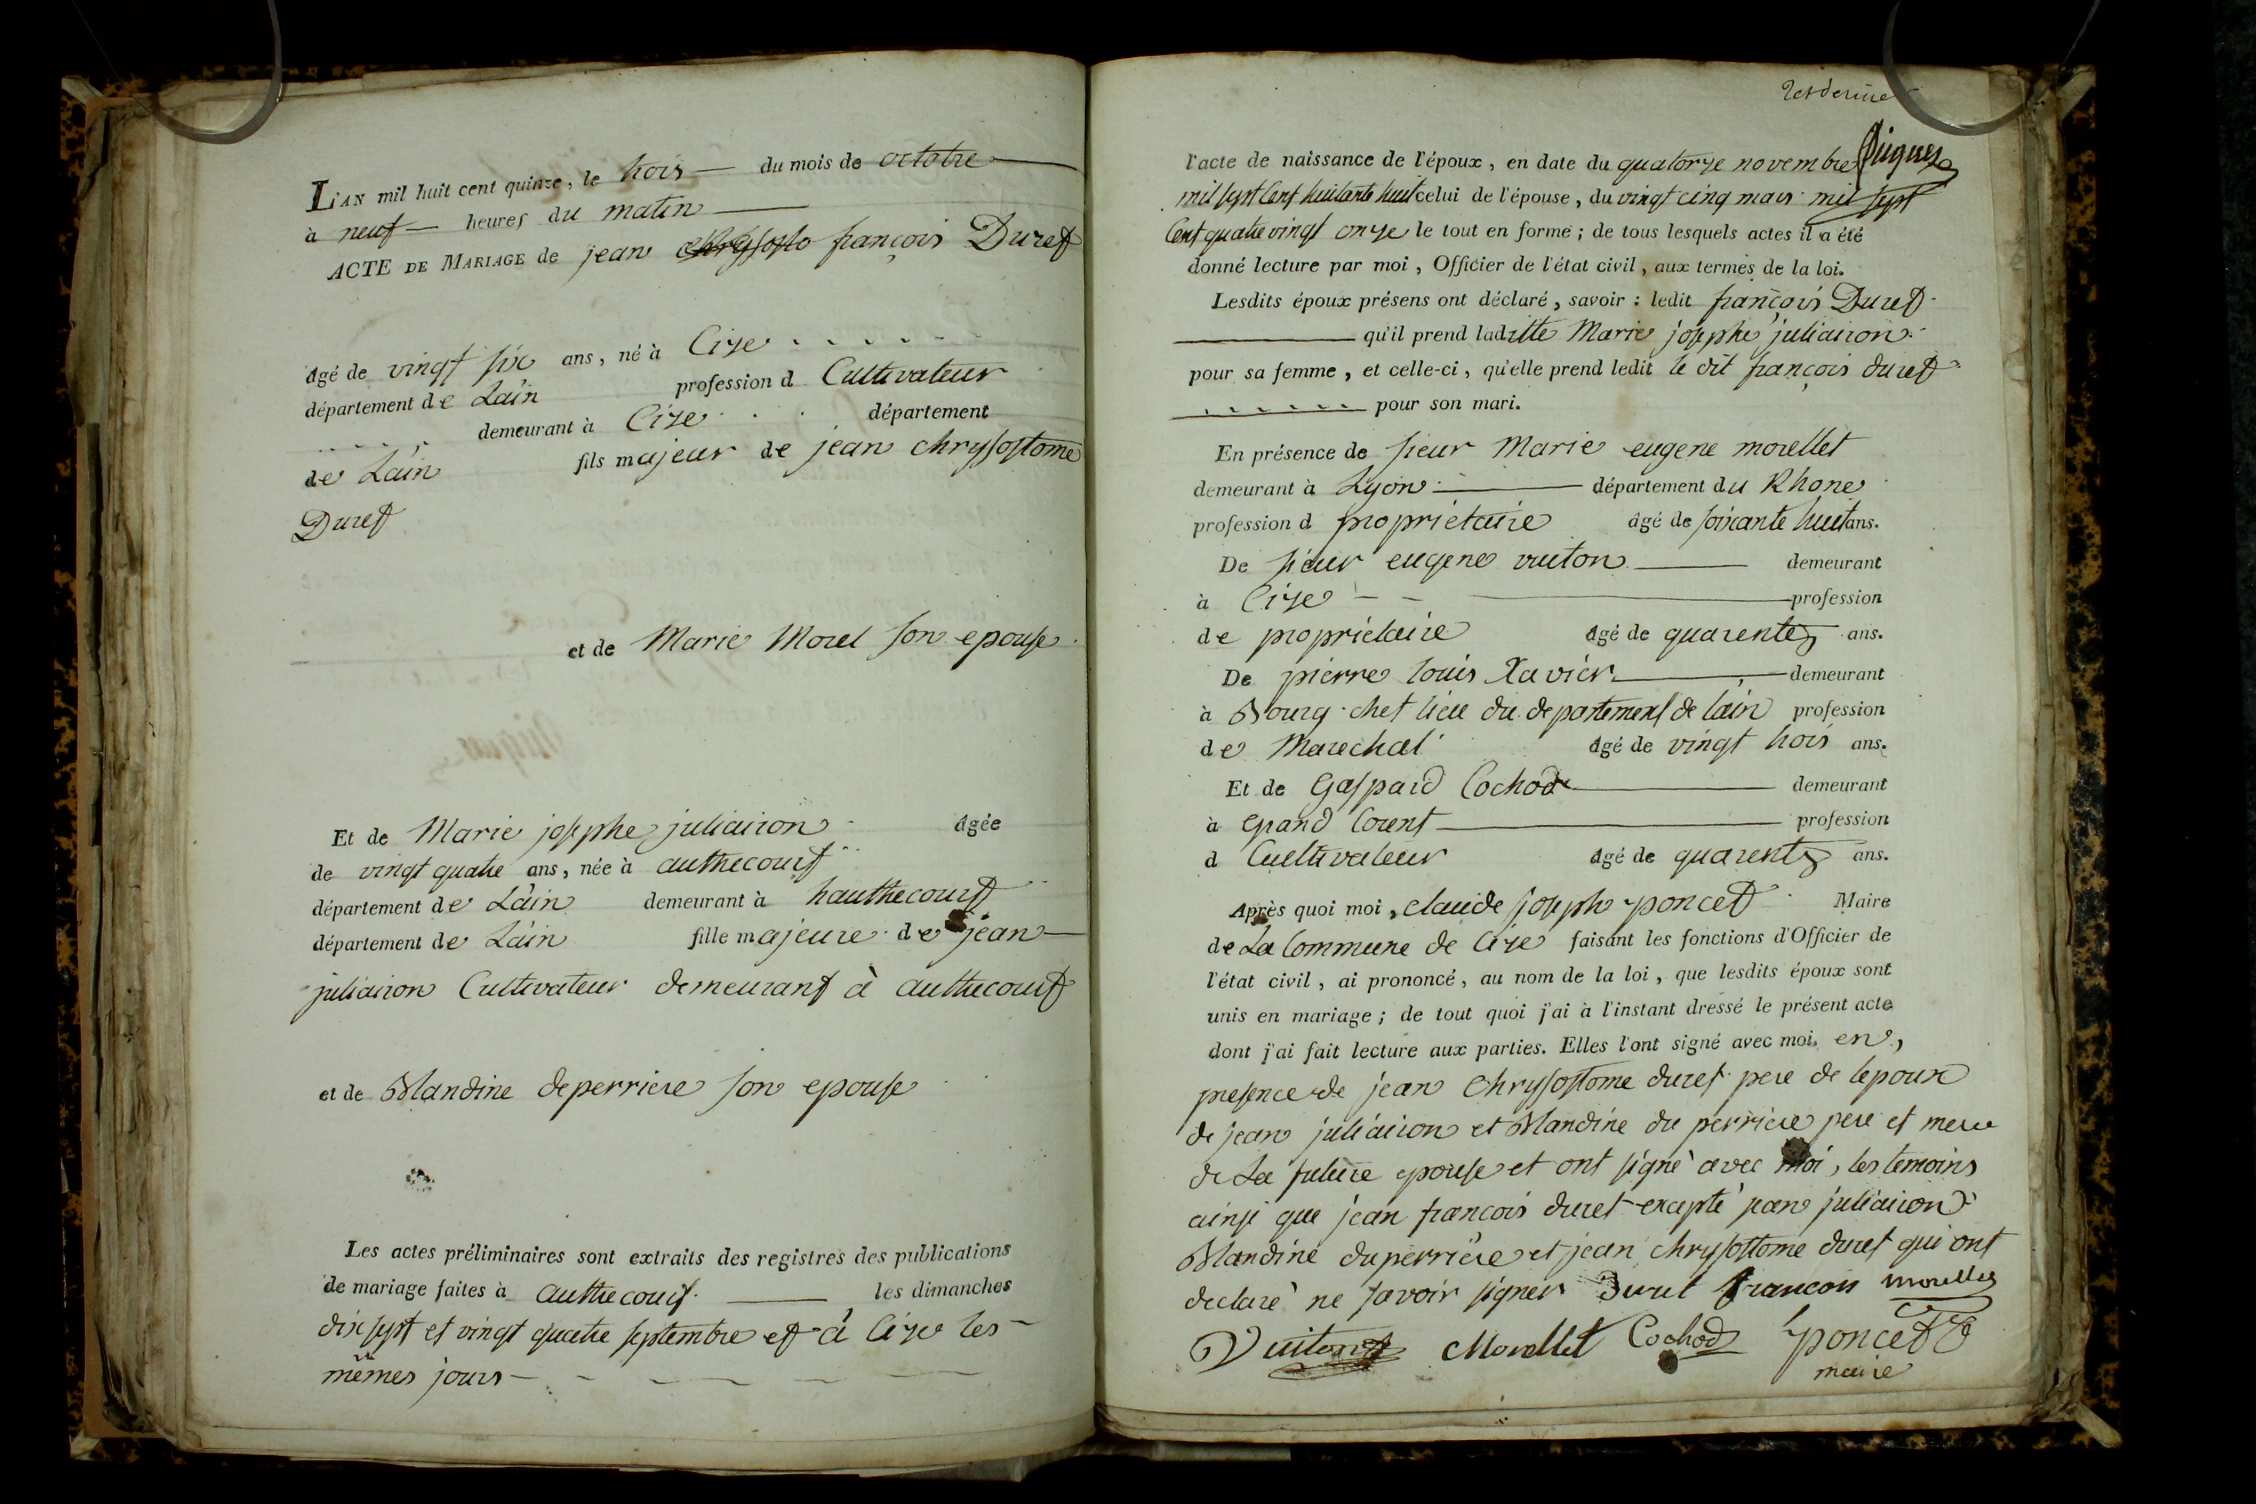 L'AN mil huit cent quinze, le trois du mois de octobre
à neuf heures du matin
ACTE DE MARIAGE de jean françois Duret
âgé de vingt six ans, né à Cize
département de Lain profession d Cultivateur
demeurant à Cize département
de Lain fils majeur de jean chrysostome
Duret
et de Marie Morel son epouse
Et de Marie josephe juliaron âgée
de vingt quatre ans, née à authecourt
département de Lain demeurant à hauthecourt
département de Lain fille majeure de jean
juliaron Cultivateur demeurant à authecourt
et de Blandine deperriere son epouse
Les actes préliminaires sont extraits des registres des publications
de mariage faites à authecourt les dimanches
dix sept et vingt quatre septembre et à Cize les
mêmes jours
l'acte de naissance de l'époux, en date du quatorze novembre
mil sept Cent huitante huit celui de l'épouse, du vingt cinq mars mil sept
Cent quatre vingt onze le tout en forme; de tous lesquels actes il a été
donné lecture par moi, Officier de l'état civil, aux termes de la loi.
Lesdits époux présens ont déclaré, savoir: ledit françois Duret
qu'il prend laditte Marie josephe juliaron
pour sa femme, et celle-ci, qu'elle prend ledit le dit françois duret
pour son mari.
En présence de sieur Marie eugene morellet
demeurant à Lyon département du Rhone
profession d propriétaire âgé de soixante huit ans.
De sieur eugene vuiton demeurant
à Cize profession
de propriétaire âgé de quarente ans.
De pierre louis Xavier demeurant
à Bourg chef lieu du departement de lain profession
de Marechal âgé de vingt trois ans.
Et de Gaspard Cochod demeurant
à grand Corent profession
d Cultivateur âgé de quarente ans.
Après quoi moi, claude joseph poncet Maire
de La Commune de Cize faisant les fonctions d'Officier de
l'état civil, ai prononcé, au nom de la loi, que lesdits époux sont
unis en mariage; de tout quoi j'ai à l'instant dressé le présent acte
dont j'ai fait lecture aux parties. Elles l'ont signé avec moi. en,
presence de jean Chrysostome duret pere de lepoux
de jean juliaron et Blandine du perriere pere et mere
de La future epouse et ont signé avec moi, les temoins
ainsi que jean francois duret excepté jean juliaron
Blandine duperriere et jean chrysostome duret qui ont
declaré ne savoir signer Duret francois morellet
Vuiton Morellet Cochod poncet
maire